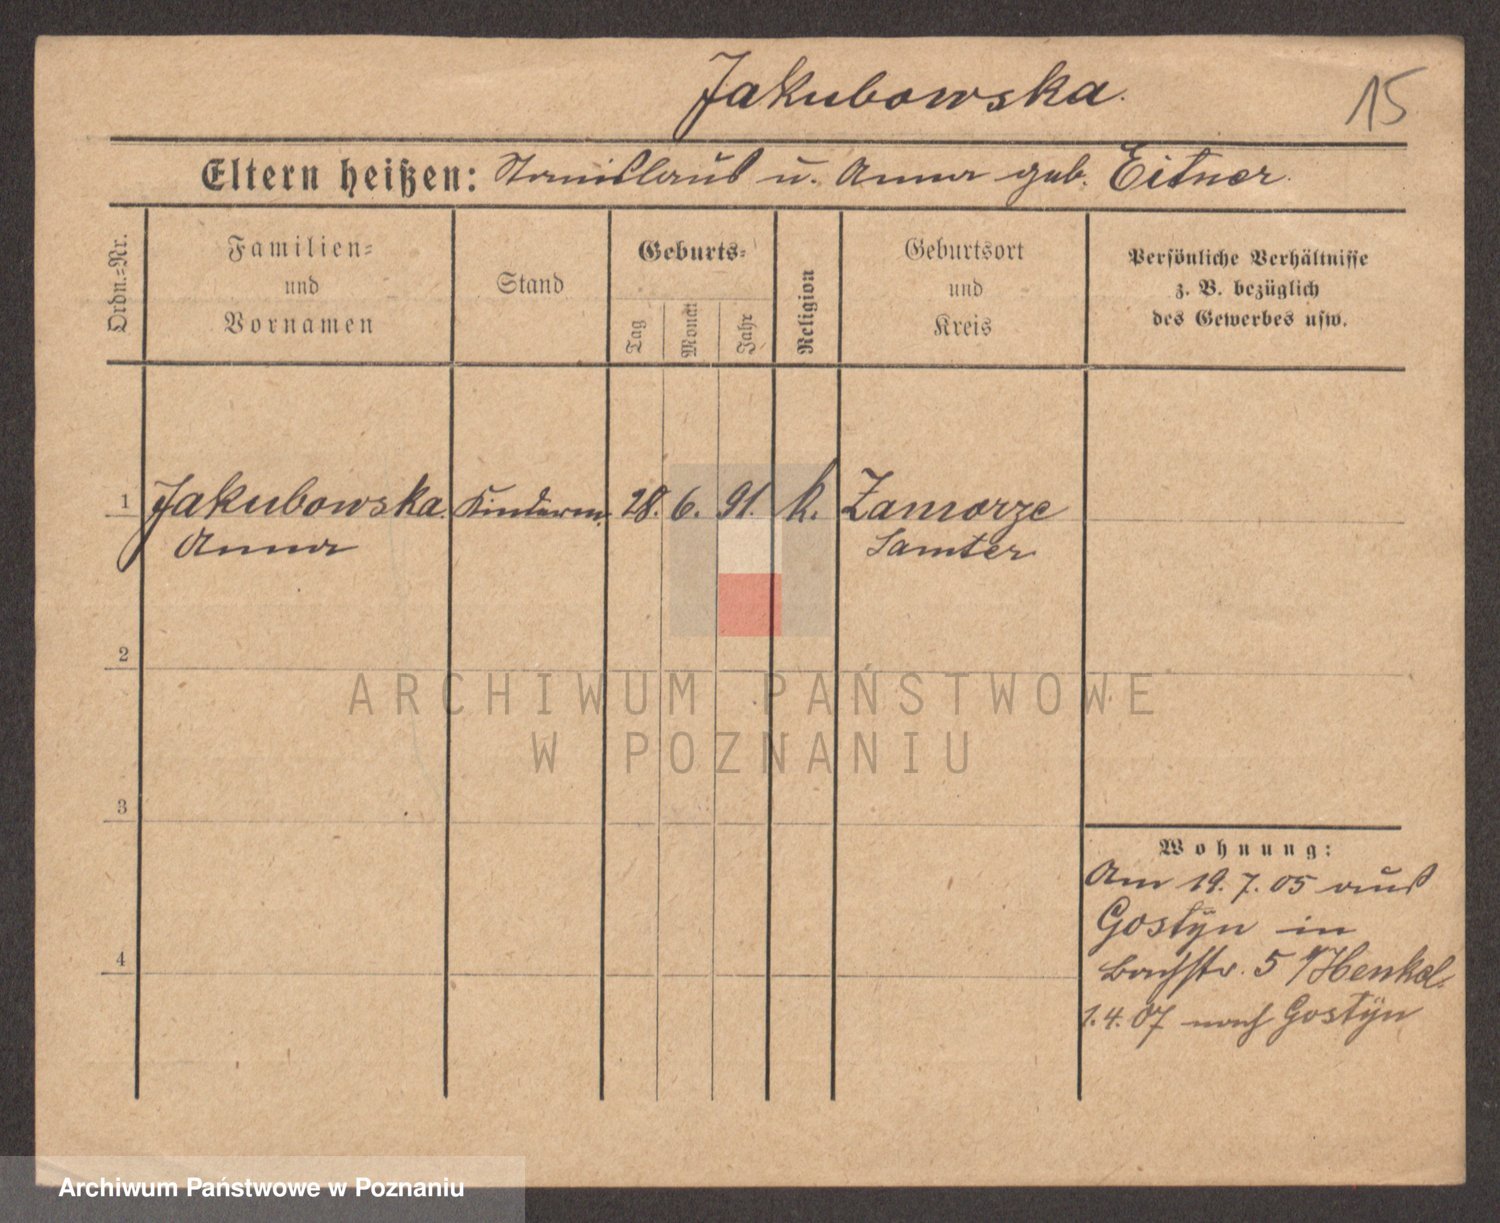 Jakubowska.
15
Eltern heißen: Stanislaus u. Anna geb. Eitner.
Ordn.=Nr.
Familien=
und
Vornamen
Stand
Geburts=
Tag
Monat
Jahr
Religion
Geburtsort
und
Kreis
Persönliche Verhältnisse
z. B. bezüglich
des Gewerbes usw.
1 Jakubowska. Kinderm. 28. 6. 91. k. Zamorze
Anna Samter
2
ARCHIWUM PAŃSTWOWE
W POZNANIU
3
Wohnung:
Am 19. 7. 05 aus
Gostÿn in
4
Bachstr. 5 b/Henkel.
1. 4. 07 nach Gostÿn
Archiwum Państwowe w Poznaniu